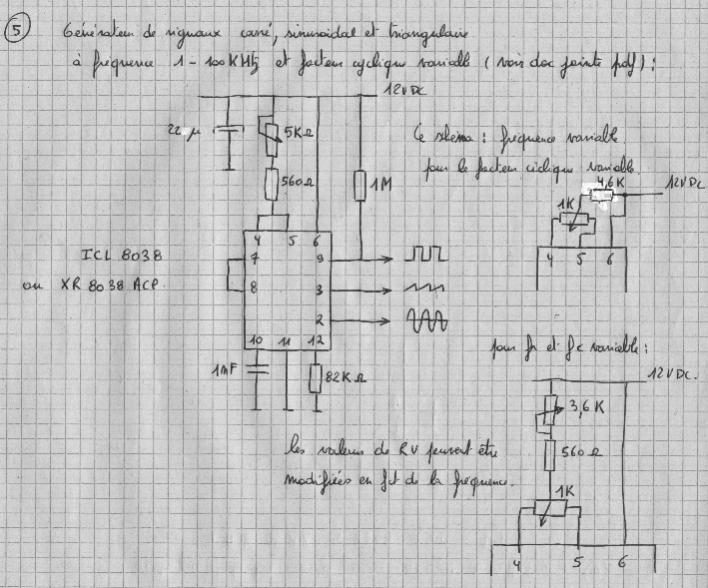 5
Générateur de signaux carré, sinusoïdal et triangulaire
à fréquence 1 - 100KHz et facteur cyclique variable (voir doc jointe pdf) :
12VDC
22 µ
5KΩ
560Ω
1M
4 5 6
7
8
9
3
2
10 11 12
ICL 8038
ou XR 8038 ACP.
1nF
82KΩ
Ce schéma : fréquence variable
pour le facteur ciclique variable.
4,6K
12VDC
1K
4 5 6
pour fr et fc variable :
12VDC.
3,6K
560Ω
1K
4 5 6
les valeurs de RV peuvent être
modifiées en fct de la fréquence.